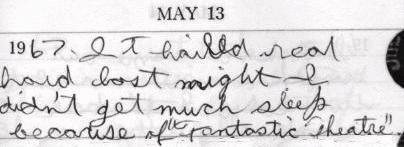 MAY 13
1967. I T hailed real
hard last night I
didn't get much sleep
because of "Fantastic Theatre".